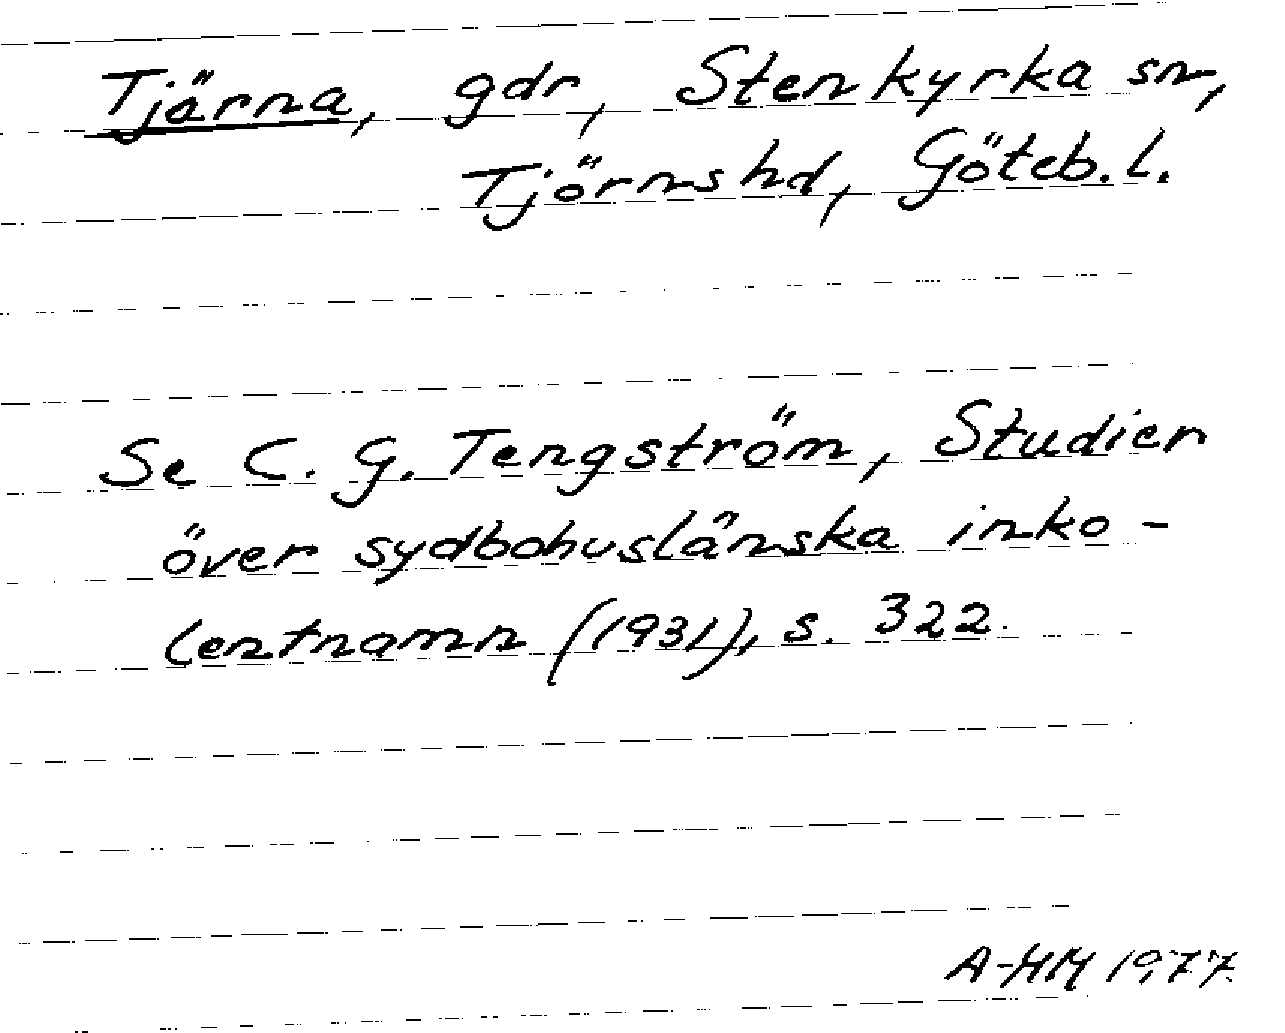 Tjärna, gdr, Stenkyrka sn,
Tjörns hd, Göteb. l.
Se C. G. Tengström, Studier
över sydbohuslänska inko-
lentnamn (1931), s. 322.
A-MM 1977